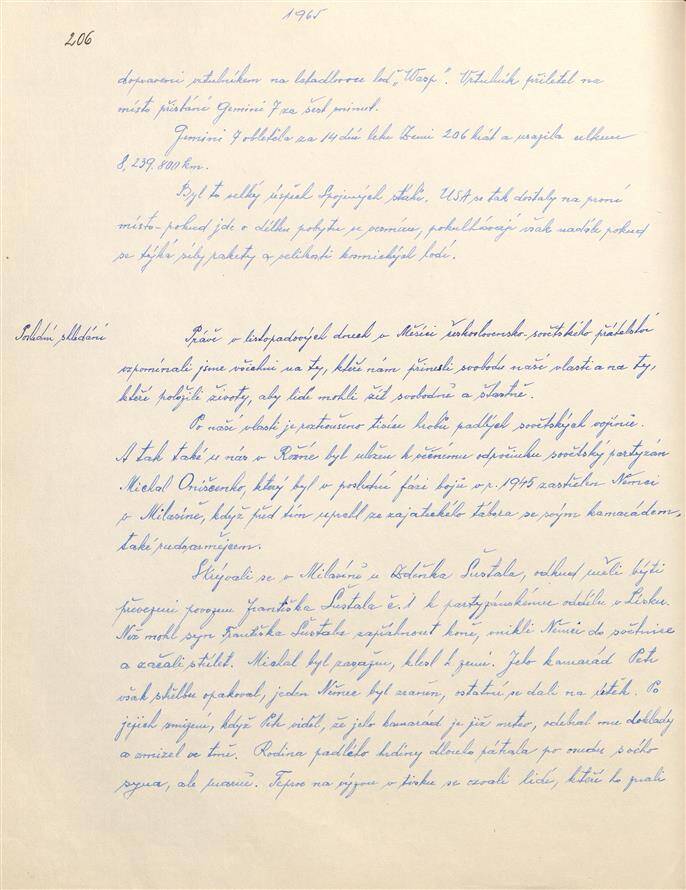 1965
206
dopraveni vrtulníkem na letadlovou loď „Wasp“. Vrtulník přiletěl na
místo přistání Gemini 7 za šest minut.
Gemini 7 obletěla za 14 dnů letu Zemi 206 krát a urazila celkem
8,239.800 km.
Byl to velký úspěch Spojených států. USA se tak dostaly na první
místo - pokud jde o délku pobytu ve vesmíru, pokulhávají však nadále pokud
se týká síly rakety a velikosti kosmických lodí.
Poslední shledání
Právě v listopadových dnech v Měsíci československo-sovětského přátelství
vzpomínali jsme všichni na ty, kteří nám přinesli svobodu naší vlasti a na ty,
kteří položili životy, aby lidé mohli žít svobodně a šťastně.
Po naší vlasti je roztroušeno tisíce hrobů padlých sovětských vojínů.
A tak také u nás v Rožné byl uložen k věčnému odpočinku sovětský partyzán
Michal Oniščenko, který byl v poslední fázi bojů v r. 1945 zastřelen Němci
v Milasíně, když před tím uprchl ze zajateckého tábora se svým kamarádem,
také rudoarmějcem.
Skrývali se v Milasíně u Zdeňka Šustala, odkud měli býti
převezeni povozem Františka Šustala č. 1 k partyzánskému oddílu v Lísku.
Než mohl syn Františka Šustala zapřáhnout koně, vnikli Němci do světnice
a začali střílet. Michal byl zasažen, klesl k zemi. Jeho kamarád Petr
však střelbu opakoval, jeden Němec byl zraněn, ostatní se dali na útěk. Po
jejich zmizení, když Petr viděl, že jeho kamarád je již mrtev, odebral mu doklady
a zmizel ve tmě. Rodina padlého hrdiny dlouho pátrala po osudu svého
syna, ale marně. Teprve na výzvu v tisku se ozvali lidé, kteří ho znali